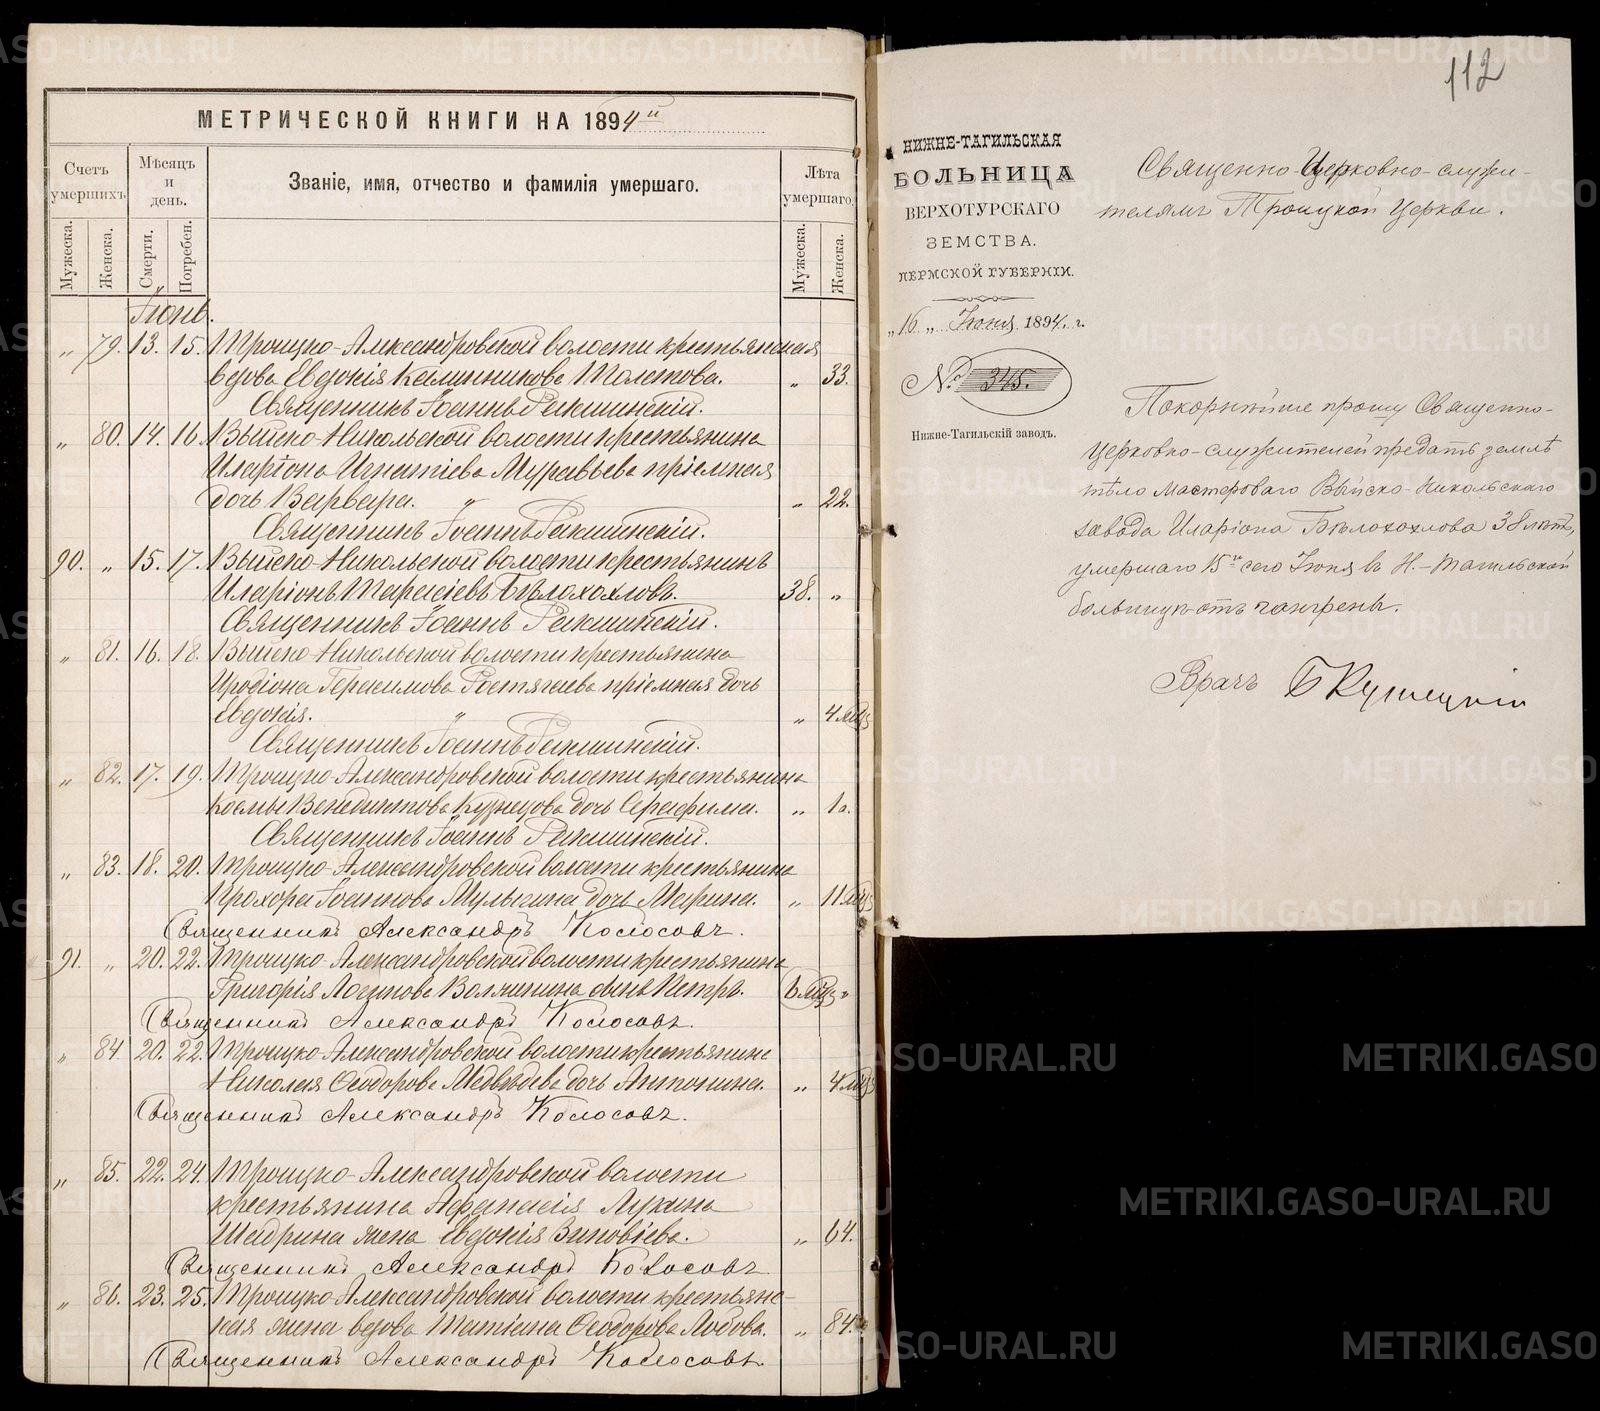 МЕТРИЧЕСКОЙ КНИГИ НА 1894 й
Счетъ умершихъ.
Мѣсяцъ и день.
Званіе, имя, отчество и фамилія умершаго.
Лѣта умершаго.
Мужеска. Женска. Смерти. Погребен. Мужеска. Женска.
Іюнь.
„ 79. 13. 15. Троицко-Александровской волости крестьянская
вдова Евдокія Калинникова Толстова. „ 33.
Священникъ Іоаннъ
„ 80. 14. 16. Выйско-Никольской волости крестьянина
Иларіона Игнатіева Муравьева пріемная
дочь Варвара. „ „ 22.
Священникъ Іоаннъ
90. „ 15. 17. Выйско-Никольской волости крестьянинъ
Иларіонъ Тарасіевъ Бѣлохохловъ. 38. „
Священникъ Іоаннъ
„ 81. 16. 18. Выйско-Никольской волости крестьянина
Иродіона Герасимова пріемная дочь
Евдокія. „ „ 4 мѣц
Священникъ Іоаннъ
„ 82. 17. 19. Троицко-Александровской волости крестьянина
Космы Венедиктова Кузнецова дочь Серафима. „ 1 г.
Священникъ Іоаннъ
„ 83. 18. 20. Троицко-Александровской волости крестьянина
Прохора Іоаннова Мулыгина дочь Марина. „ 11 мѣц
Священникъ Александръ Колосовъ.
91. „ 20. 22. Троицко-Александровской волости крестьянина
Григорія Логинова сынъ Петръ. 6 мѣц „
Священникъ Александръ Колосовъ.
„ 84. 20. 22. Троицко-Александровской волости крестьянина
Николая Ѳеодорова Медвѣдева дочь Антонина. „ 4 мѣц
Священникъ Александръ Колосовъ.
„ 85. 22. 24. Троицко-Александровской волости
крестьянина Аѳанасія Лукина
Шадрина жена Евдокія Зиновіева. „ 64.
Священникъ Александръ Колосовъ
„ 86. 23. 25. Троицко-Александровской волости крестьянс-
кая жена вдова Татіана Ѳеодорова Лобова. „ 84.
Священникъ Александръ Колосовъ.
112
НИЖНЕ-ТАГИЛЬСКАЯ
БОЛЬНИЦА
ВЕРХОТУРСКАГО
ЗЕМСТВА.
ПЕРМСКОЙ ГУБЕРНІИ.
„ 16 „ Іюня 1894 г.
№ 345.
Нижне-Тагильскій заводъ.
Священно-Церковно-служи-
телямъ Троицкой Церкви.
Покорнѣйше прошу Священно-
церковно-служителей предать землѣ
тѣло мастероваго Выйско-Никольскаго
завода Иларіона Бѣлохохлова 38 лѣтъ,
умершаго 15го сего Іюня въ Н.-Тагильской
больницѣ отъ гангрены.
Врачъ Б Кузнецкій
METRIKI.GASO-URAL.RU